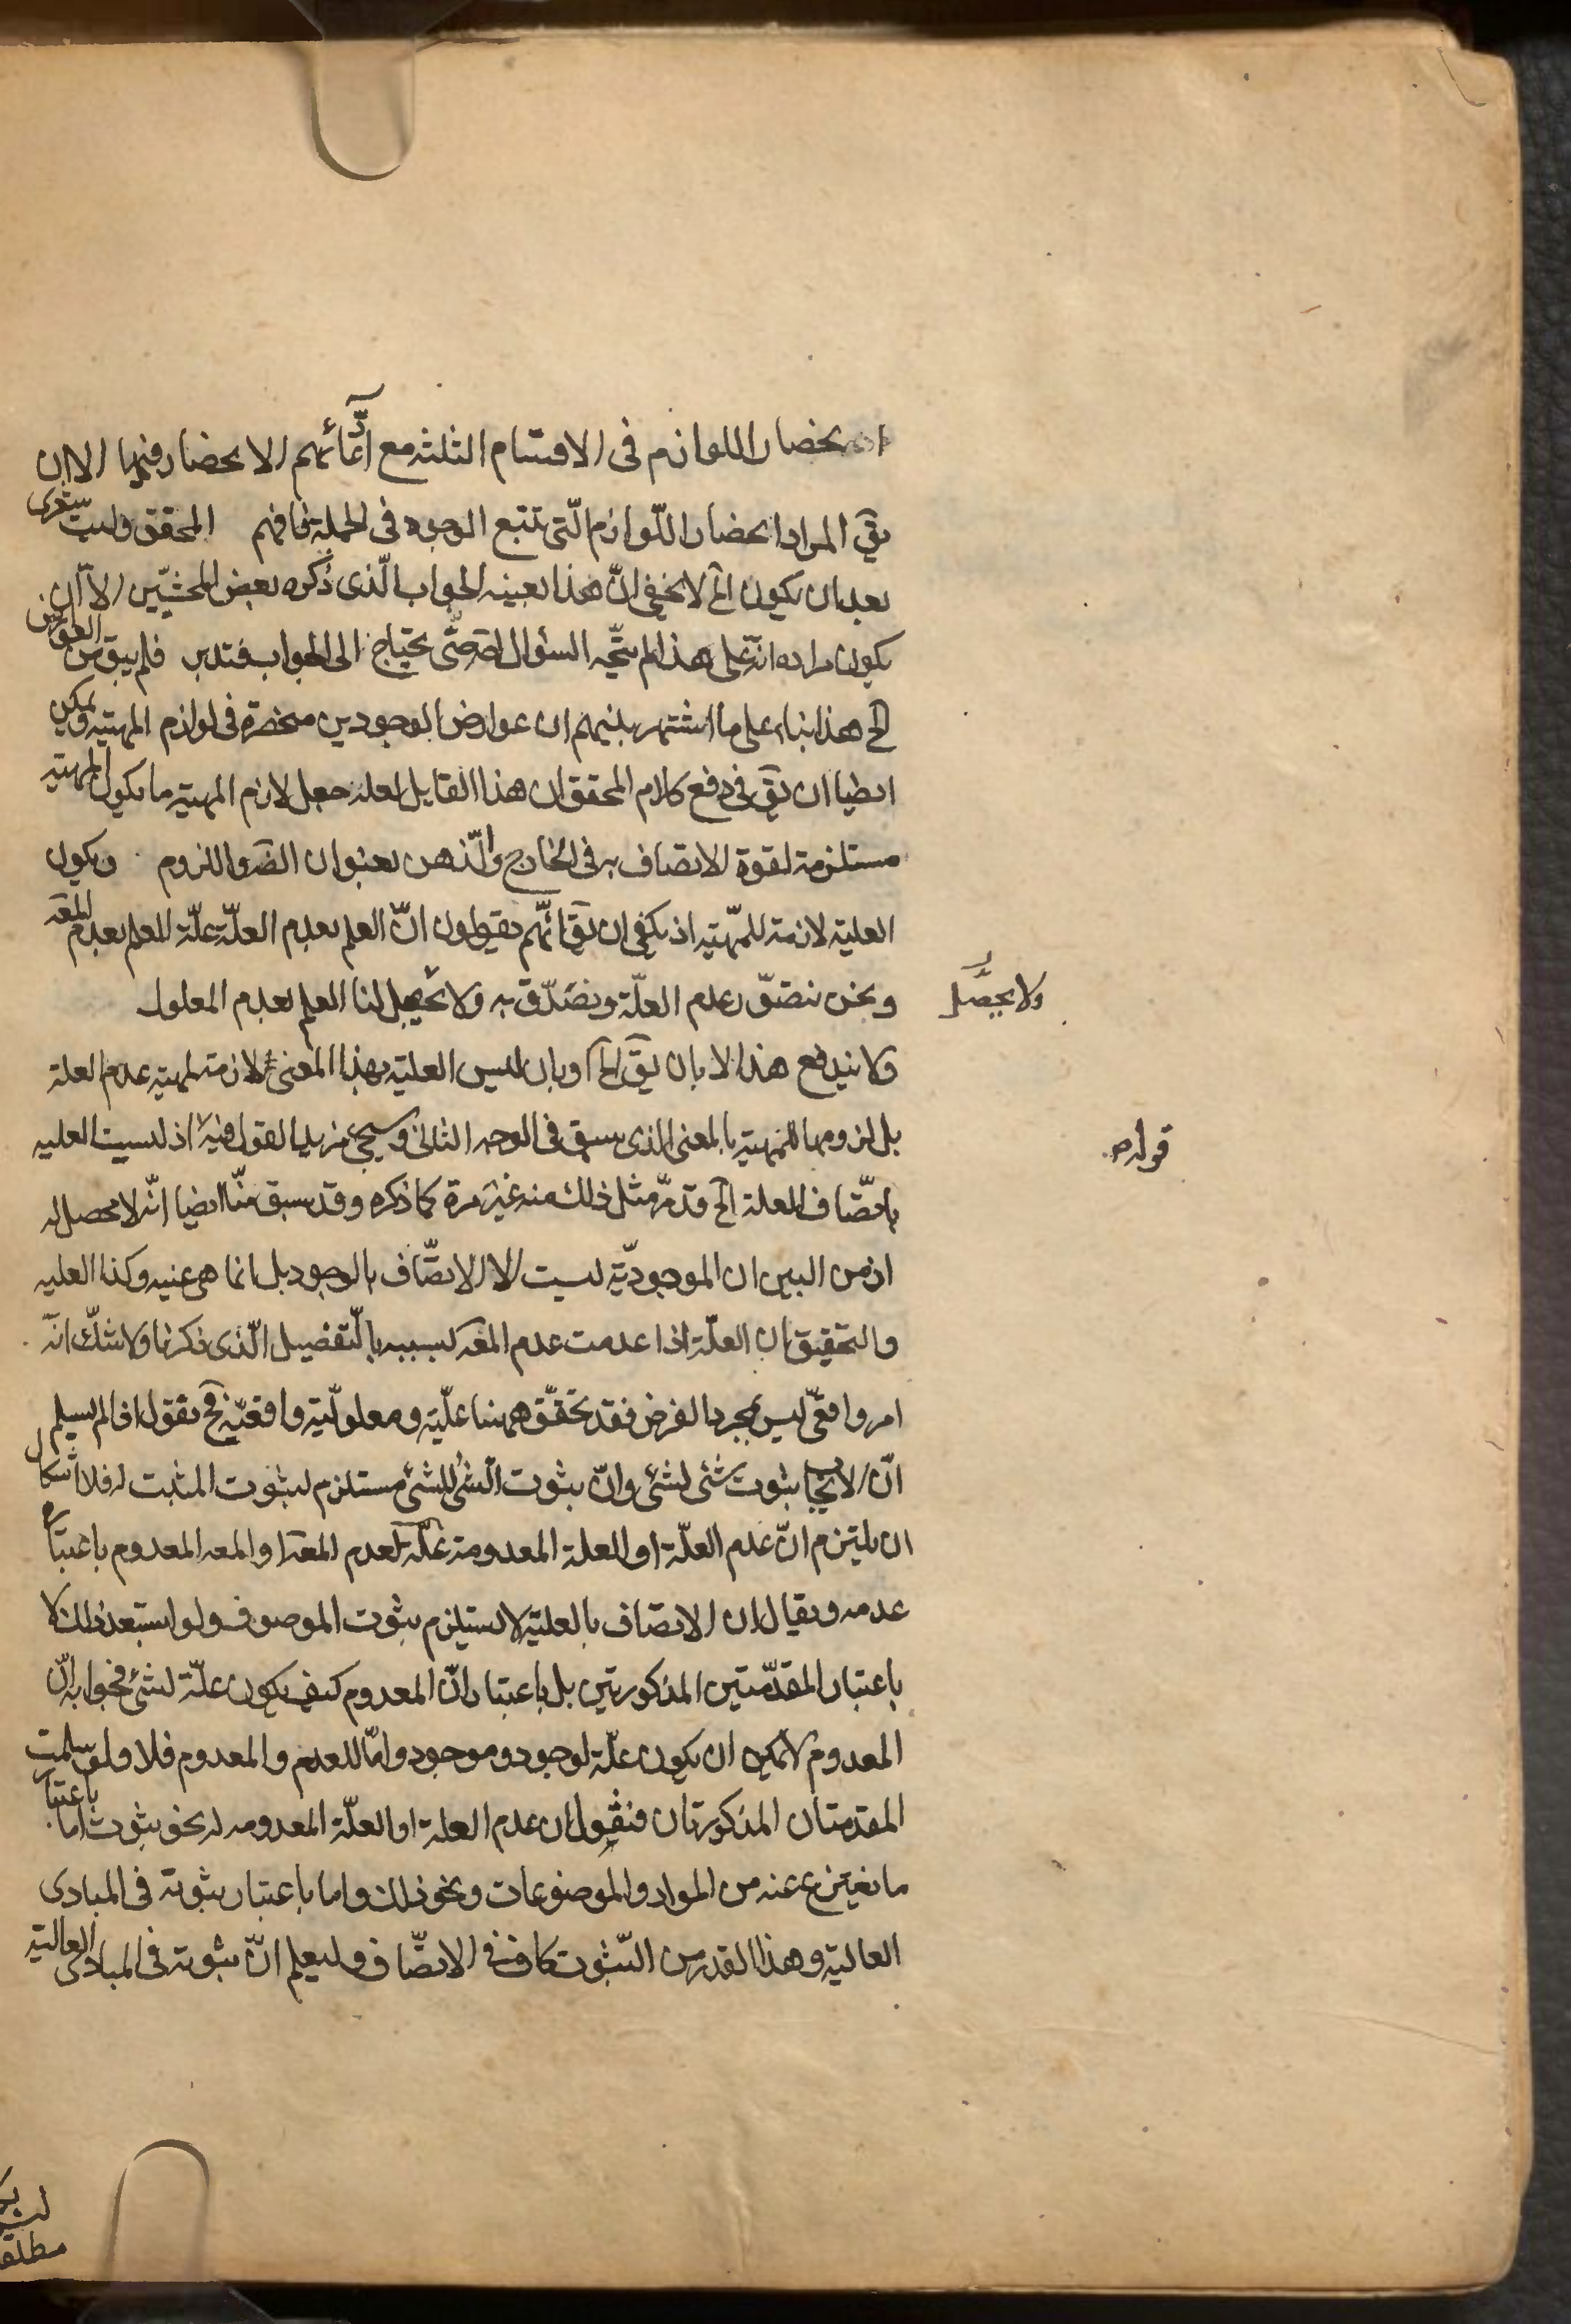 انحصار اللوازم فى الاقسام الثلثة مع ادّعائهم الانحصار فيها الا ان
يقٓ المراد انحصار اللّوازم الّتى تتبع الوجود فى الجملة فافهم المحقق وليت شعرى
بعد ان يكون الخ لا يخفى انّ هذا بعينه الجواب الّذى ذكره بعض المحشيّين الا ان
يكون مراده انّه على هذا لم يتّجه السؤال حتّى يحتاج الى الجواب فتدبر فلم يبق من العوارض
الخ هذا بناء على ما اشتهر بينهم ان عوارض الوجودين منحصرة فى لوازم المهيّة ويمكن
ايضا ان يقٓ فى دفع كلام المحقق ان هذا القايل لعله جعل لازم المهية ما يكون المهية
مستلزمة لقوة الاتصاف به فى الخارج والّذهن بعنوان الضٓ واللزوم ويكون
العلية لازمة للمهّية اذ يكفى ان يقٓ انّهم يقولون انّ العلم بعدم العلّة علّة للعلم بعدم المعٓه
ونحن نتصوّر عدم العلّة ونصدّق به ولا يحصل لنا العلم بعدم المعلول
ولا يحصّل
ولا يندفع هذا الا بان يقٓ الخ او بان ليس العلية بهذا المعنى لازمة لمهية عدم العلة
بل لزومها للمهية بالمعنى الذى سبق فى الوجه الثانى وسيجئ مزيد القول فيه اذ ليست العليه
قوله
باتصّاف العلة الخ قد مرّ مثل ذلك منه غير مرة كما ذكره وقد سبق منّا ايضا انّه لا محصل له
اذ من البين ان الموجوديّة ليست الا الاتصّاف بالوجود بل انما هى عينه وكذا العليه
والتحقيق ان العلّة اذا عدمت عدم المعٓه بسببه بالتّفصيل الّذى ذكرنا ولا شكّ انّه
امر واقعىّ ليس بمجرد الفرض فقد تحقّق ههنا علّية ومعلوليّة واقعيّة فح نقول اذا لم يسلم
انّ الايجاب ثبوت شئ لشئ وانّ ثبوت الشئ للشئ مستلزم لثبوت المثبت له فلا اشكال
ان يلتزم انّ عدم العلّة او العلة المعدومة علّة لعدم المعٓه او المعه المعدوم باعتبار
عدمه ويقال ان الاتصاف بالعلية لا يستلزم ثبوت الموصوف ولو استبعد ذلك لا
باعتبار المقدّمتين المذكورتين بل باعتبار انّ المعدوم كيف يكون علّة لشئ فجوابه انّ
المعدوم لا يمكن ان يكون علّة لوجود وموجود وامّا للعدم والمعدوم فلا ولو سلمت
المقدمتان المذكورتان فنقول ان عدم العلة او العلّة المعدومه له نحو ثبوت اما باعتبار
ما ينتزع عنه من المواد والموضوعات ونحو ذلك واما باعتبار ثبوته فى المبادى
العالية وهذا القدر من الثّبوت كاف فى الاتصّاف وليعلم انّ ثبوته فى المبادى العالية
مطلقا